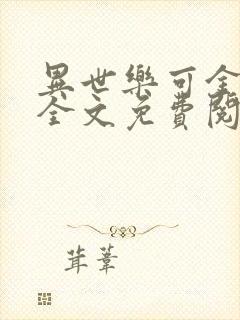 異世樂可全
全文免費閱
茸葦